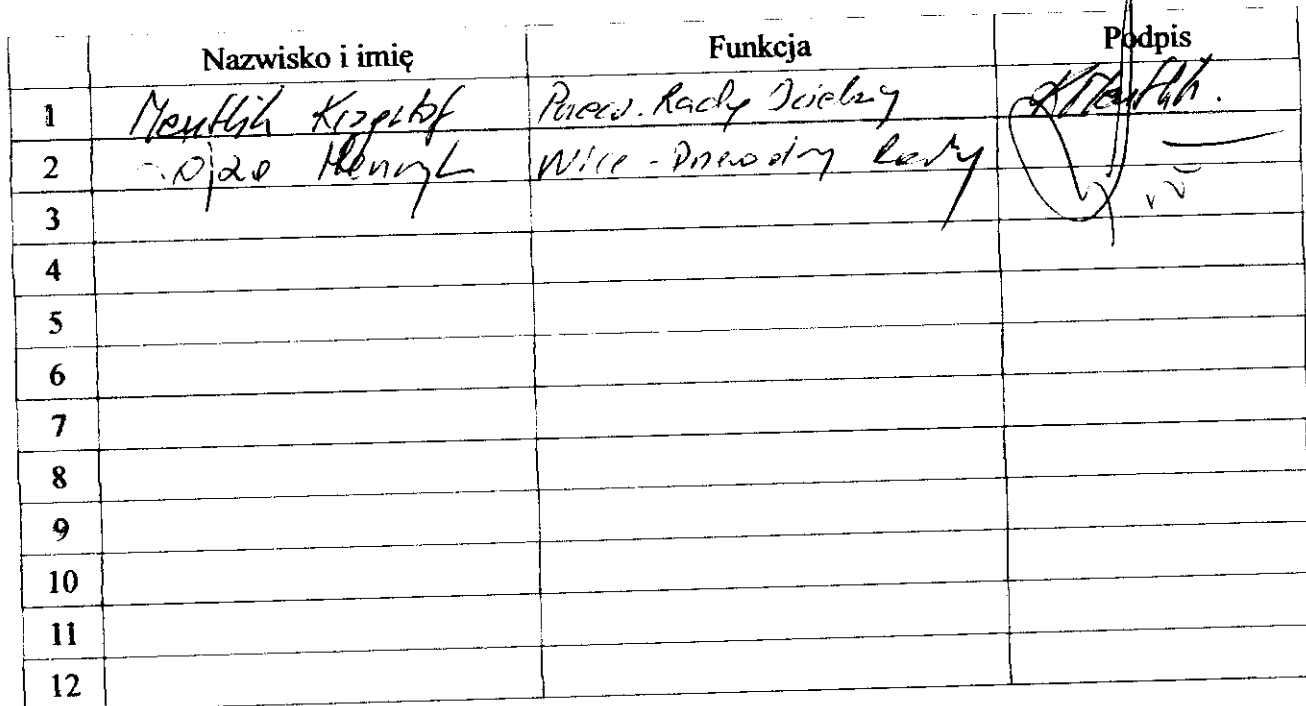 Nazwisko i imię Funkcja Podpis
1 Mentlik Krzysztof Przew. Rady Dzielnicy KMentlik.
2 Henryk Wice - Przewodn. Rady
3
4
5
6
7
8
9
10
11
12